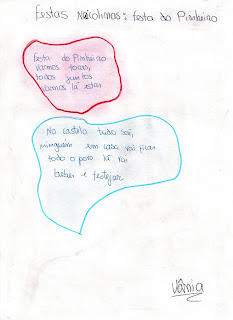 Festas Nicolinas: festa do Pinheiro
Festa do Pinheiro
Vamos tocar,
todos juntos
vamos lá estar
No castelo tudo sai,
ninguém em casa vai ficar
todo o povo lá vai
beber e festejar
Vânia